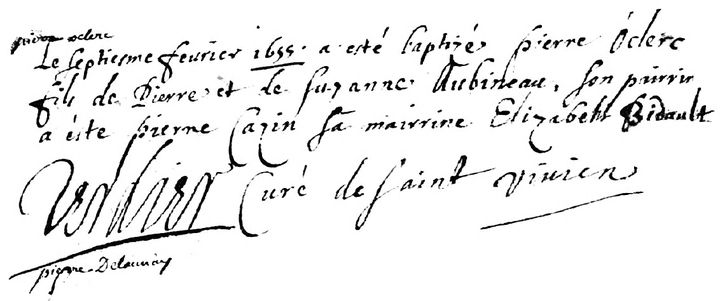 pierre oclerc
Le septiesme febvrier 1655 a esté baptizé pierre Oclerc
fils de Pierre et de Suzanne Aubineau, son pairrin
a este pierre Cazin sa mairrine Elizabeth Bidault
Verdier Curé de saint vivien
pierre Delaunay